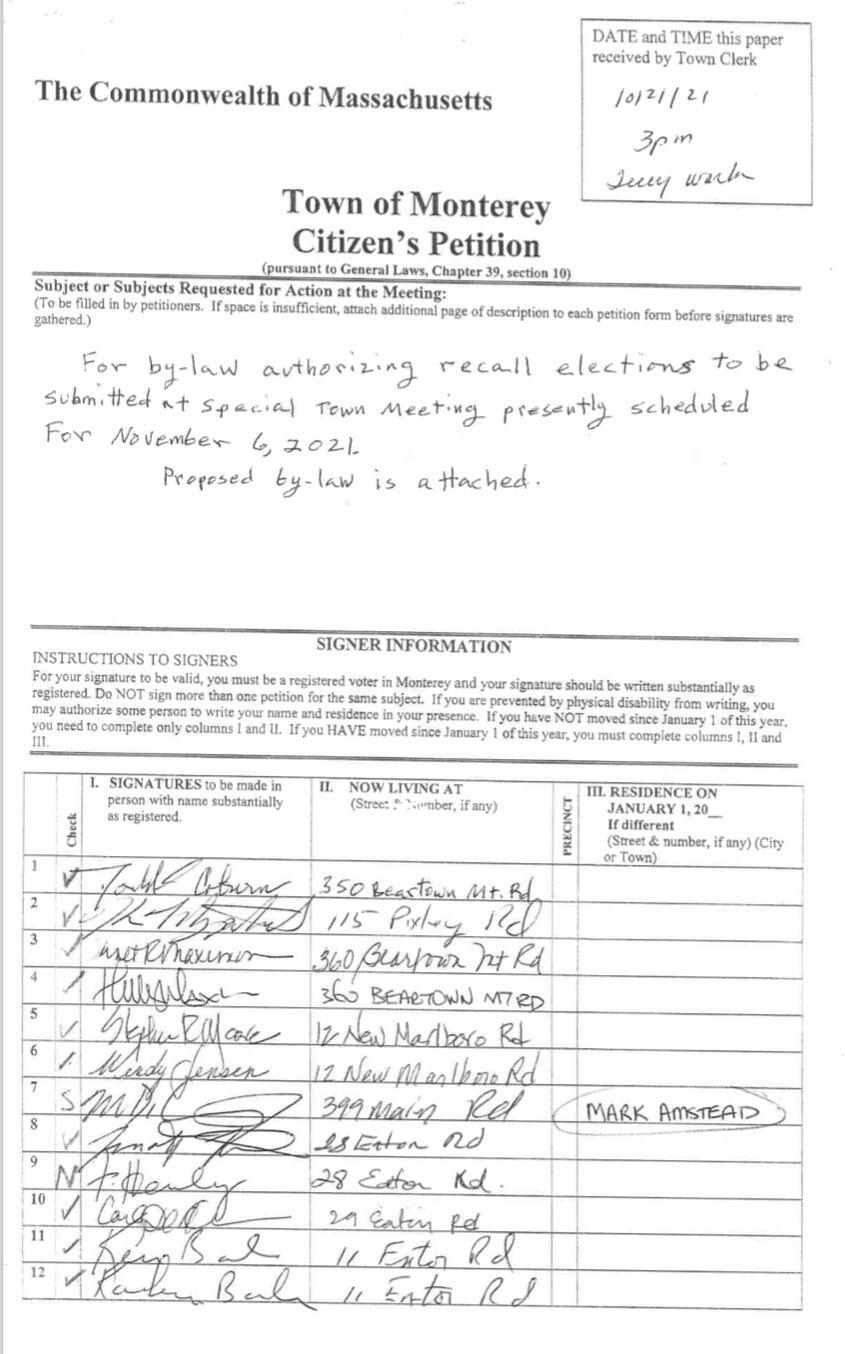 DATE and TIME this paper
received by Town Clerk
10/21/21
3pm
The Commonwealth of Massachusetts
Town of Monterey
Citizen's Petition
(pursuant to General Laws, Chapter 39, section 10)
Subject or Subjects Requested for Action at the Meeting:
(To be filled in by petitioners. If space is insufficient, attach additional page of description to each petition form before signatures are
gathered.)
For by-law authorizing recall elections to be
submitted at Special Town Meeting presently scheduled
For November 6, 2021.
Proposed by-law is attached.
SIGNER INFORMATION
INSTRUCTIONS TO SIGNERS
For your signature to be valid, you must be a registered voter in Monterey and your signature should be written substantially as
registered. Do NOT sign more than one petition for the same subject. If you are prevented by physical disability from writing, you
may authorize some person to write your name and residence in your presence. If you have NOT moved since January 1 of this year,
you need to complete only columns I and II. If you HAVE moved since January 1 of this year, you must complete columns I, II and
III.
Check
I. SIGNATURES to be made in
person with name substantially
as registered.
II. NOW LIVING AT
(Street & Number, if any)
PRECINCT
III. RESIDENCE ON
JANUARY 1, 20__
If different
(Street & number, if any) (City
or Town)
1 Coburn 350 Beartown Mt. Rd
2 115 Pixley Rd
3 360 Beartown Mt Rd
4 360 BEARTOWN MT RD
5 Stephen R Moore 12 New Marlboro Rd
6 Wendy Jensen 12 New Marlboro Rd
7 S 399 Main Rd MARK AMSTEAD
8 28 Eaton Rd
9 N F. Henly 28 Eaton Rd.
10 29 Eaton Rd
11 11 Eaton Rd
12 11 Eaton Rd